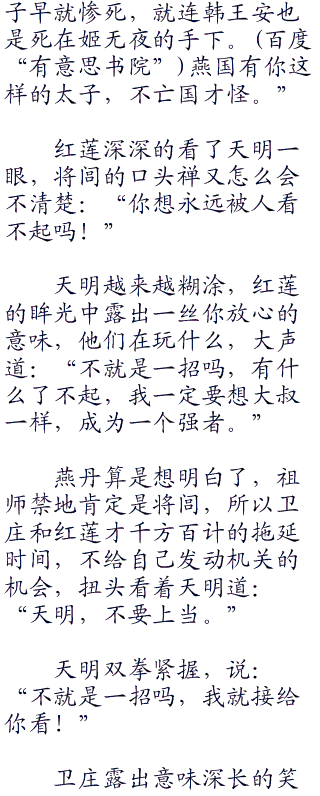 子早就惨死，就连韩王安也
是死在姬无夜的手下。(百度
“有意思书院”)燕国有你这
样的太子，不亡国才怪。”
红莲深深的看了天明一
眼，将闾的口头禅又怎么会
不清楚：“你想永远被人看
不起吗！”
天明越来越糊涂，红莲
的眸光中露出一丝你放心的
意味，他们在玩什么，大声
道：“不就是一招吗，有什
么了不起，我一定要想大叔
一样，成为一个强者。”
燕丹算是想明白了，祖
师禁地肯定是将闾，所以卫
庄和红莲才千方百计的拖延
时间，不给自己发动机关的
机会，扭头看着天明道：
“天明，不要上当。”
天明双拳紧握，说：
“不就是一招吗，我就接给
你看！”
卫庄露出意味深长的笑